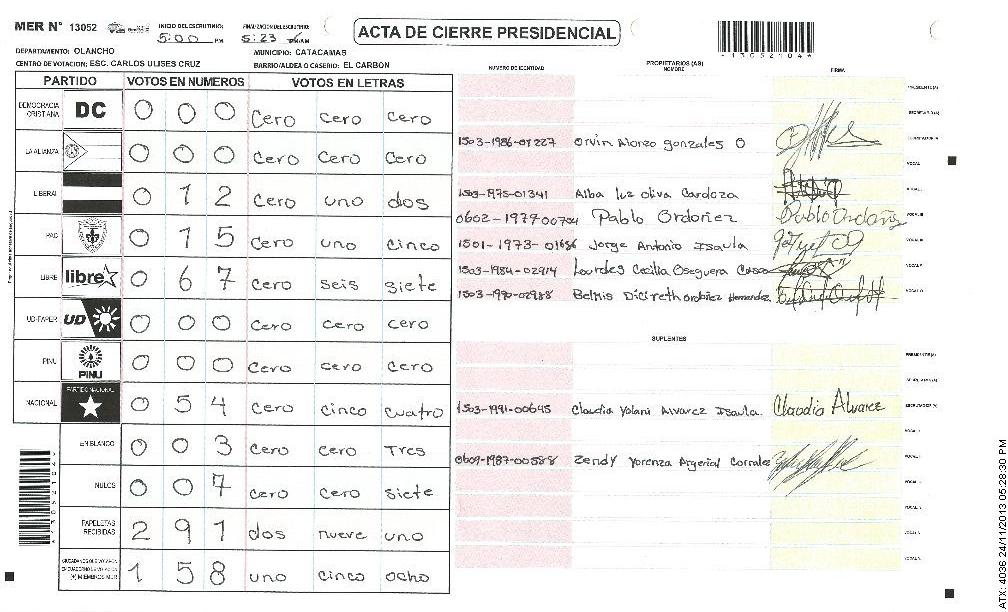 MER N° 13052
INICIO DEL ESCRUTINIO:
5:00 PM
FINALIZACION DEL ESCRUTINIO:
5:23
ACTA DE CIERRE PRESIDENCIAL
DEPARTAMENTO: OLANCHO
MUNICIPIO: CATACAMAS
CENTRO DE VOTACION: ESC. CARLOS ULISES CRUZ
BARRIO/ALDEA O CASERIO: EL CARBON
PARTIDO VOTOS EN NUMEROS VOTOS EN LETRAS
DEMOCRACIA CRISTIANA DC 0 0 0 Cero cero cero
LA ALIANZA 0 0 0 Cero Cero Cero
LIBERAL 0 1 2 Cero uno dos
PAC 0 1 5 Cero uno cinco
LIBRE libre 0 6 7 cero seis siete
UD-FAPER UD 0 0 0 cero cero cero
PINU PINU 0 0 0 Cero cero cero
NACIONAL PARTIDO NACIONAL 0 5 4 cero cinco cuatro
EN BLANCO 0 0 3 cero cero Tres
NULOS 0 0 7 cero cero siete
PAPELETAS RECIBIDAS 2 9 1 dos nueve uno
1 5 8 uno cinco ocho
NUMERO DE IDENTIDAD
PROPIETARIOS (AS)
NOMBRE
FIRMA
1503-1986-01227 Orvin Alonzo gonzales O
1503-1975-01341 Alba luz oliva Cardoza
Pablo Ordoñez Pablo Ordoñez
Jorge Antonio Isaula
1503-1984-02914 Lourdes Cecilia Oseguera
1503-1990-02988 Belkis Ordoñez Hernandez
SUPLENTES
1503-1991-00645 Claudia Yolani Alvarez Isaula Claudia Alvarez
0609-1987-00588 Zendy Yorenza Corrales
-13052104*
ATX: 4036 24/11/2013 05:28:30 PM